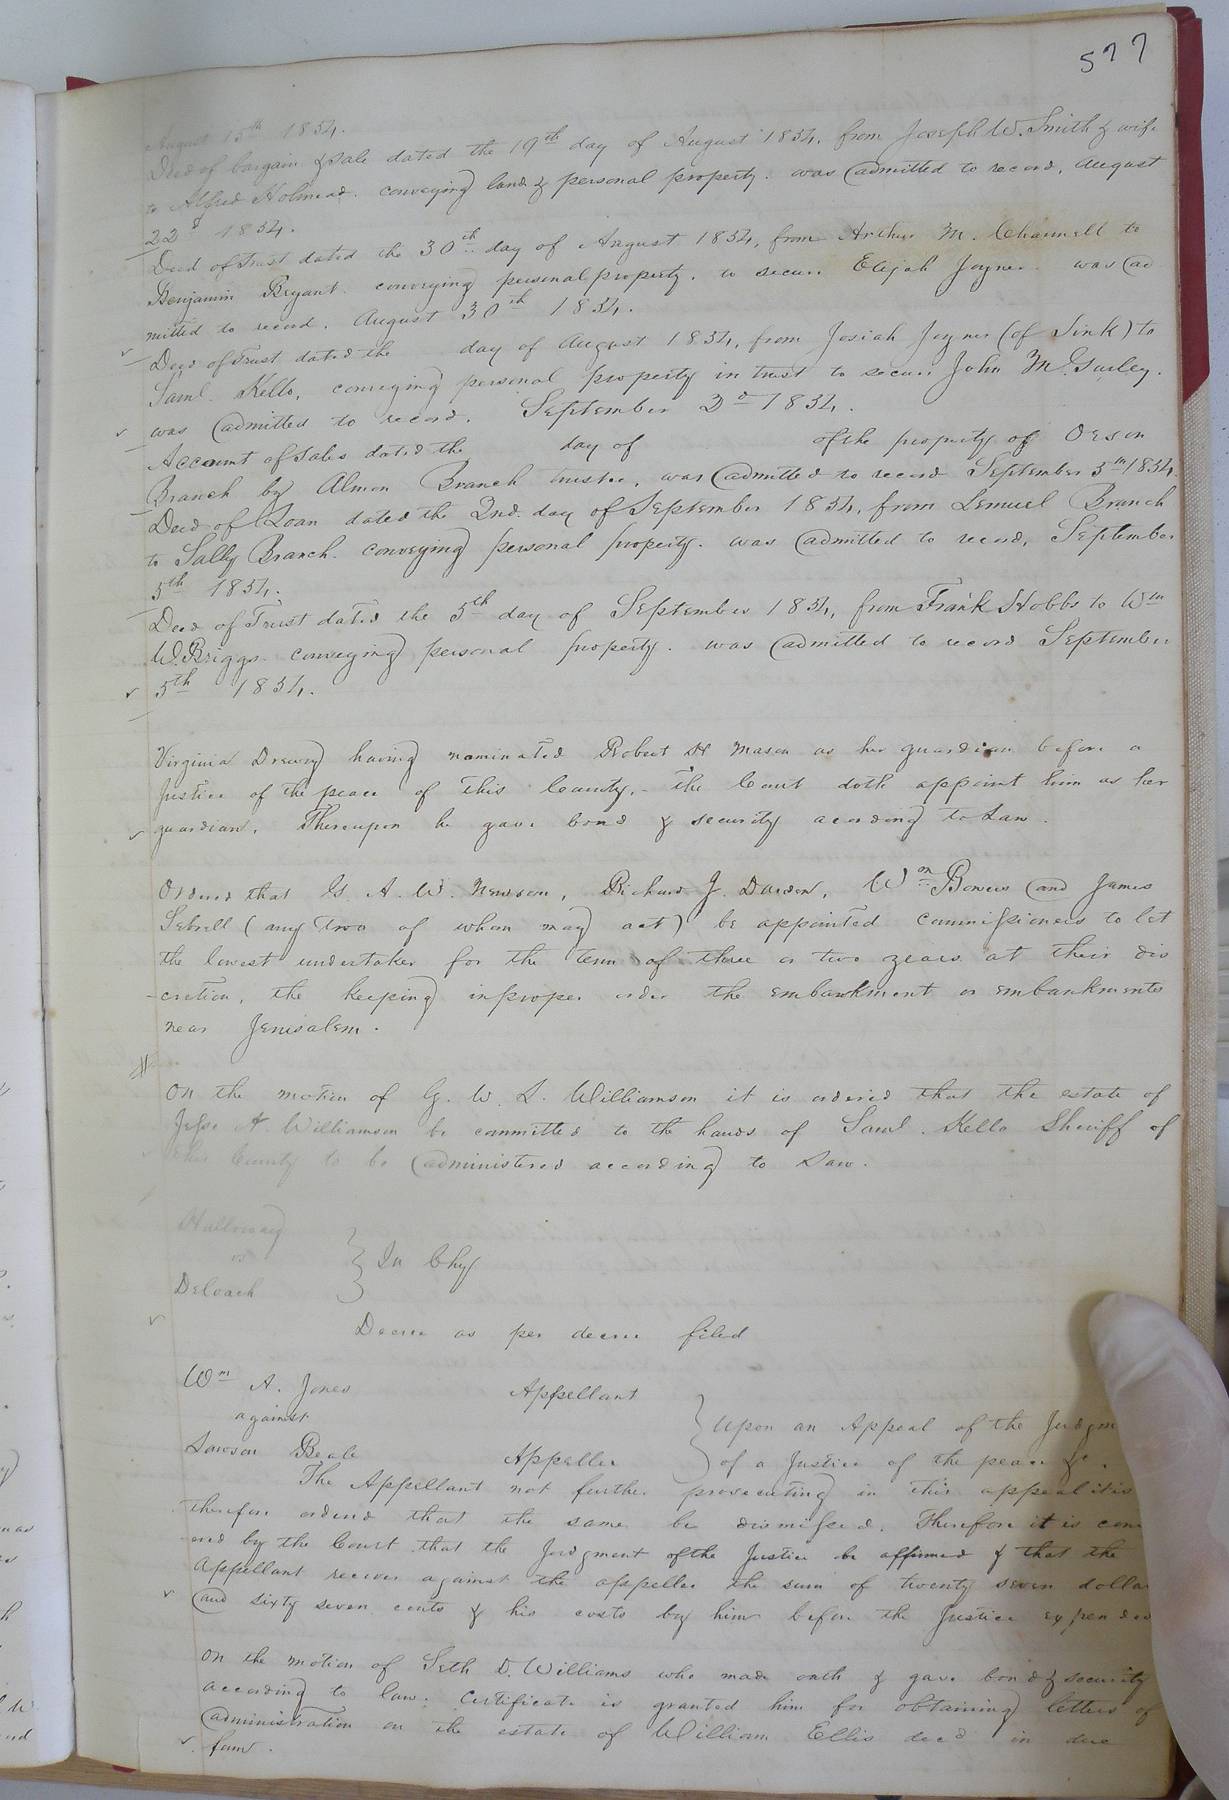 577
August 15th 1854.
Deed of bargain & sale dated the 19th day of August 1854, from Joseph W. Smith & wife
to Alfred Holmead. conveying land & personal property. was admitted to record, August
22d 1854.
Deed of Trust dated the 30th day of August 1854, from Arthur M. Channell to
Benjamin Bryant conveying personal property, to secure Elijah Joyner was ad
mitted to record. August 30th 1854.
Deed of Trust dated the day of August 1854, from Josiah Joyner (of Sink) to
Saml. Kello, conveying personal property in trust to secure John M. Gurley.
was admitted to record. September 2d 1854.
Account of Sales dated the day of of the property of Orson
Branch by Almon Branch trustee, was admitted to record September 5th 1854.
Deed of Loan dated the 2nd. day of September 1854, from Lemuel Branch
to Sally Branch. conveying personal property. was admitted to record, September
5th 1854.
Deed of Trust dated the 5th day of September 1854, from Frank Hobbs to Wm
W. Briggs conveying personal property. was admitted to record September
5th 1854.
Virginia Drewry having nominated Robert H Mason as her guardian before a
Justice of the peace of this County, - the Court doth appoint him as her
guardian. Thereupon he gave bond & security acording to Law.
Ordered that G. A. W. Newsom, Richard J. Darden, Wm Bowers and James
Sebrell (any two of whom may act) be appointed commissioners to let
the lowest undertaker for the term of three or two years at their dis
-cretion, the keeping in proper order the embankment or embankments
near Jerusalem.
On the motion of G. W. L. Williamson it is ordered that the estate of
Jesse A. Williamson be committed to the hands of Saml. Kello Sheriff of
this County to be administered according to Law.
Holloway
vs
DeLoach } In Chy
Decree as per decree filed
Wm A. Jones Appellant
against } Upon an Appeal of the Judgm
Lawson Beale Appellee } of a Justice of the peace &c.
The Appellant not further prosecuting in this appeal it is
therefore ordered that the same be dismissed. Therefore it is con
ered by the Court that the Judgment of the Justice be affirmed & that the
Appellant recover against the appellee the sum of twenty seven dolla
and sixty seven cents & his costs by him before the Justice expended
On the motion of Seth D. Williams who made oath & gave bond & security
according to law. Certificate is granted him for obtaining letters of
administration on the estate of William Ellis decd in due
form.